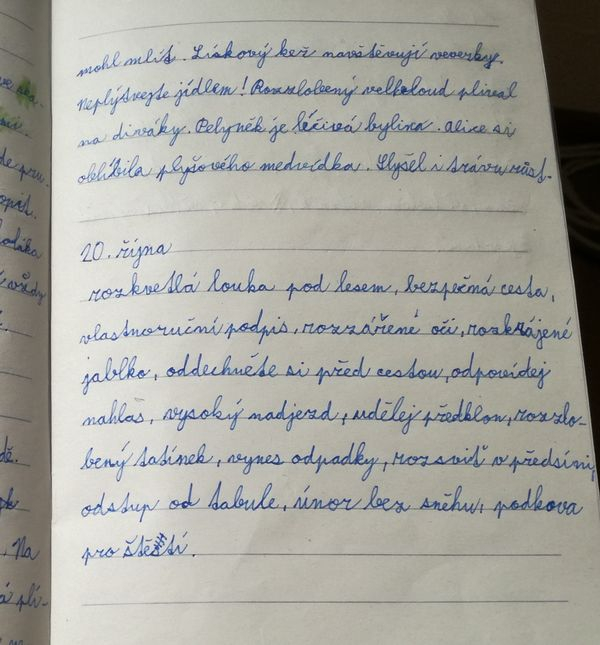 mohl mlít. Lískový keř navštěvují veverky.
Neplýtvejte jídlem! Rozzlobený velbloud plival
na diváky. Pelyněk je léčivá bylina. Alice si
oblíbila plyšového medvídka. Slyšel i trávu růst.
20. října
rozkvetlá louka pod lesem, bezpečná cesta,
vlastnoruční podpis, rozzářené oči, rozkrájené
jablko, oddechněte si před cestou, odpovídej
nahlas, vysoký nadjezd, udělej předklon, rozzlo-
bený tatínek, vynes odpadky, rozsviť v předsíni,
odstup od tabule, únor bez sněhu, podkova
pro štěstí.
opit.
vždy
dě.
. Na
á plí-